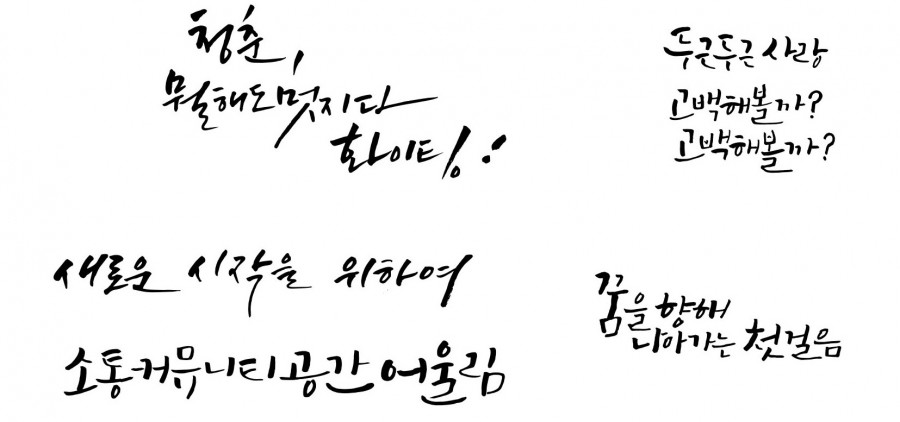 청춘,
뭘해도 멋지다
화이팅!
두근두근 사랑
고백해볼까?
고백해볼까?
새로운 시작을 위하여
소통커뮤니티공간 어울림
꿈을 향해
나아가는 첫걸음